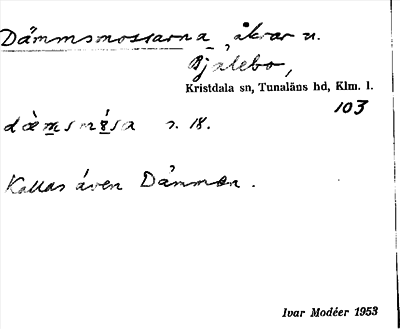 Dämmsmossarna, åkrar u.
Bjälebo,
Kristdala sn, Tunaläns hd, Klm. l.
103
s. 18.
Kallas även Dämmen.
Ivar Modéer 1953